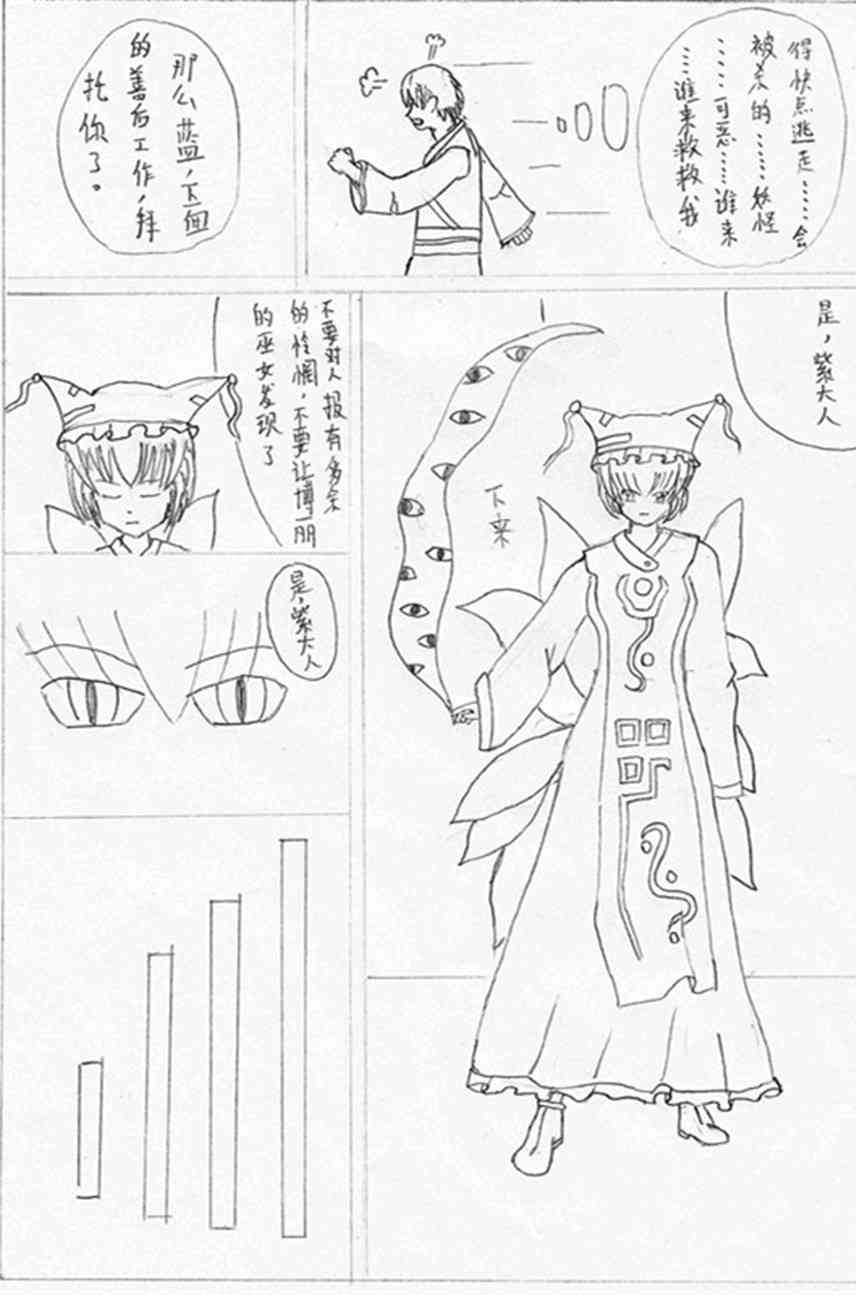 得快点逃走……会
被杀的……妖怪
……可恶……谁来
……谁来救救我
那么蓝，下面
的善后工作，拜
托你了。
是，紫大人
下来
不要对人报有多余
的怜悯，不要让博丽
的巫女发现了
是，紫大人